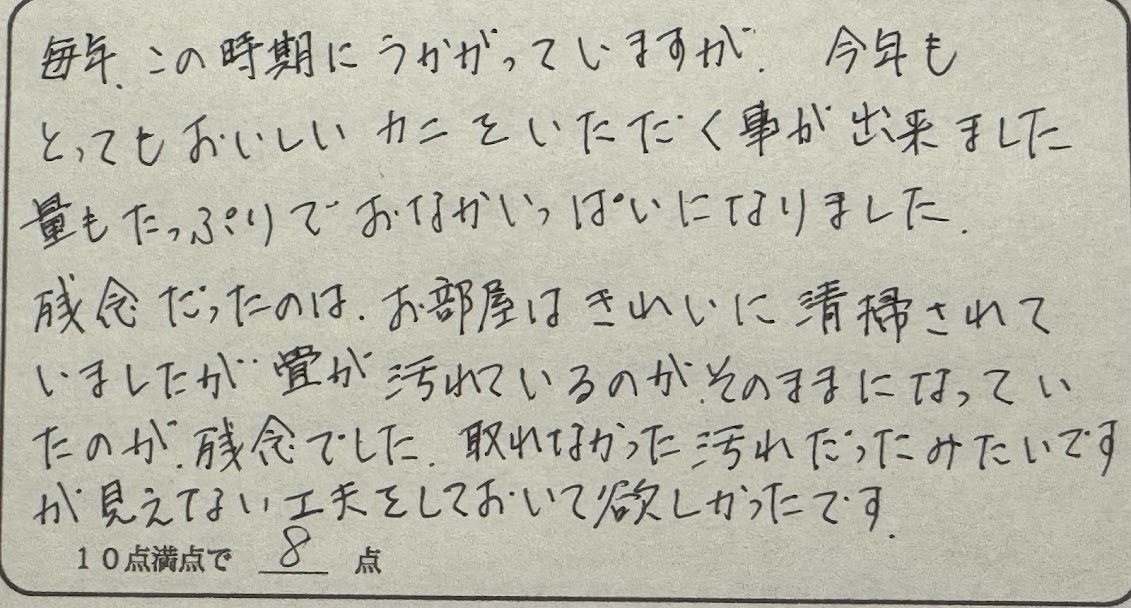 毎年、この時期にうかがっていますが、今年も
とってもおいしいカニをいただく事が出来ました
量もたっぷりでおなかいっぱいになりました。
残念だったのは、お部屋はきれいに清掃されて
いましたが畳が汚れているのが、そのままになってい
たのが、残念でした。取れなかった汚れだったみたいです
が見えてない工夫をしておいて欲しかったです。
10点満点で 8 点